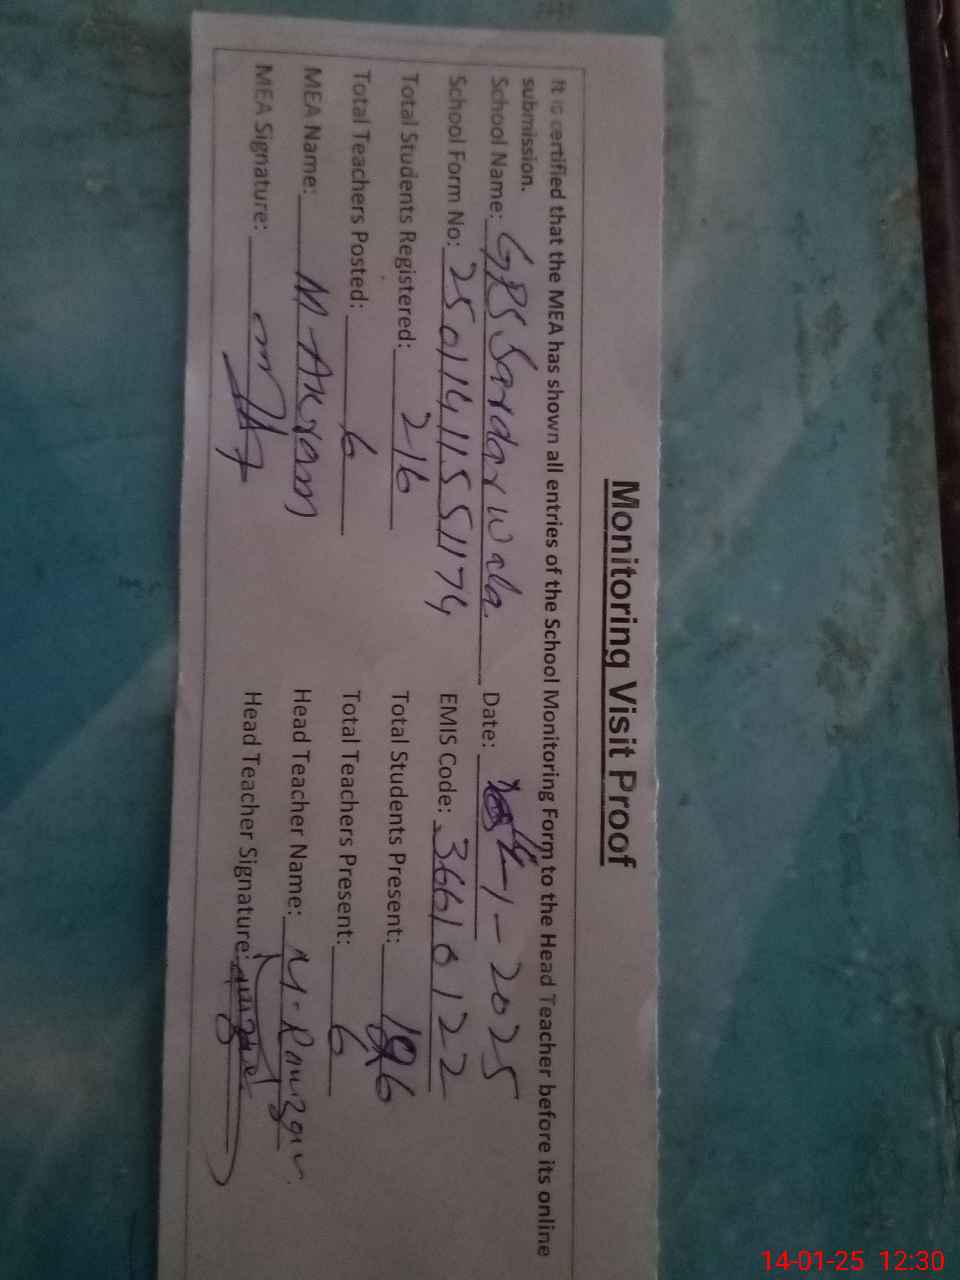 Monitoring Visit Proof
It is certified that the MEA has shown all entries of the School Monitoring Form to the Head Teacher before its online
submission.
School Name: GPS Sardar wala. Date: 14-1-2025
School Form No: 25011411551174 EMIS Code: 36610122
Total Students Registered: 216 Total Students Present: 196
Total Teachers Posted: 6 Total Teachers Present: 6
MEA Name: M Akram Head Teacher Name: M.
MEA Signature: Head Teacher Signature:
14-01-25 12:30